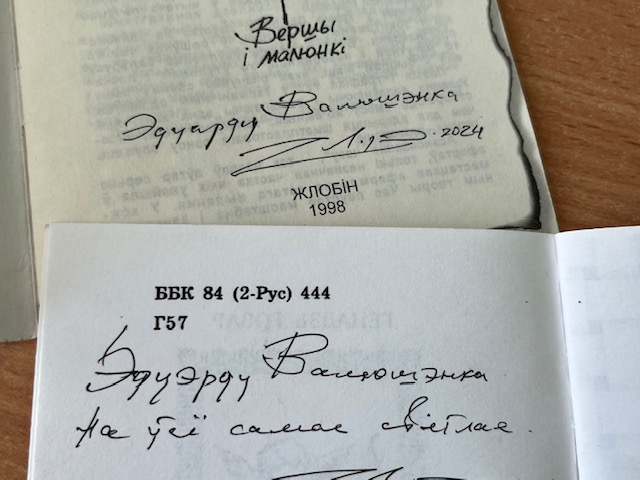 Вершы
і малюнкі
Эдуарду Валюшэнка
2024
ЖЛОБІН
1998
ББК 84 (2-Рус) 444
Г57
Эдуэрду Валюшэнка
На ўсё самае светлае.